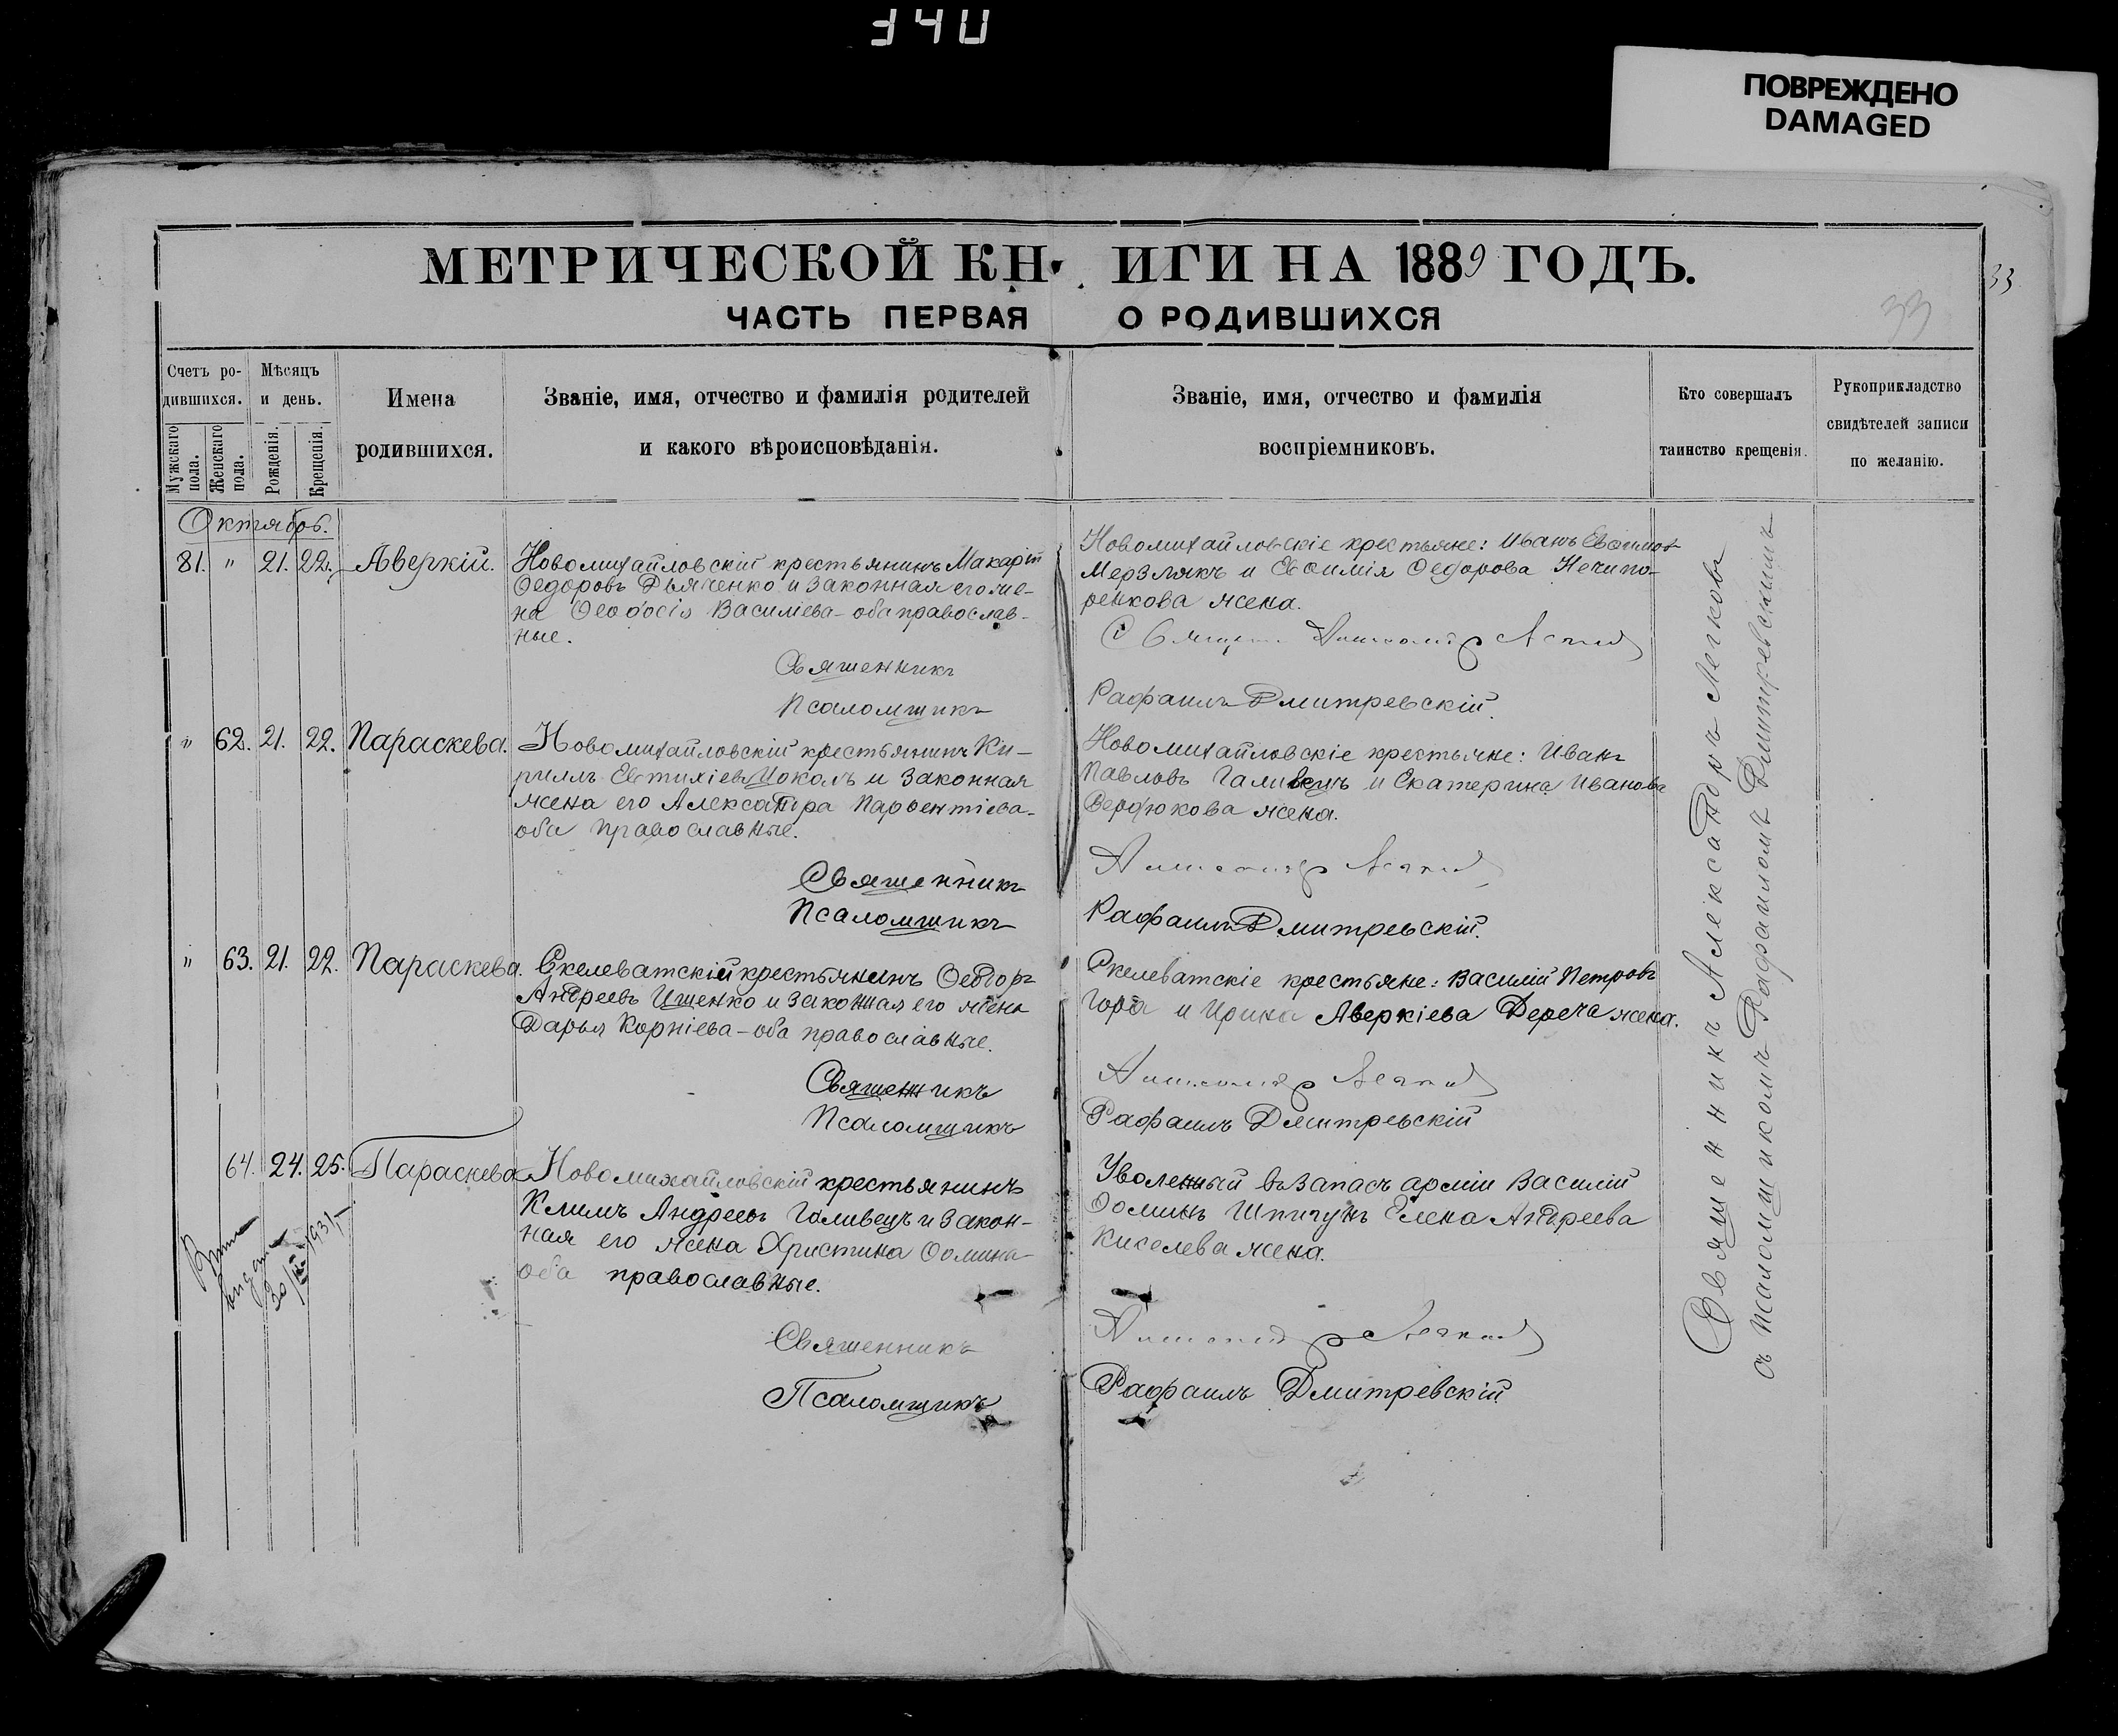 340
ПОВРЕЖДЕНО
DAMAGED
МЕТРИЧЕСКОЙ КНИГИ НА 1889 ГОДЪ.
33
33
ЧАСТЬ ПЕРВАЯ О РОДИВШИХСЯ
Счетъ ро-
дившихся.
Мужскаго пола.
Женскаго пола.
Мѣсяцъ
и день.
Рожденія.
Крещенія.
Имена
родившихся.
Званіе, имя, отчество и фамилія родителей
и какого вѣроисповѣданія.
Званіе, имя, отчество и фамилія
воспріемниковъ.
Кто совершалъ
таинство крещенія.
Рукоприкладство
свидѣтелей записи
по желанію.
Октябрь.
81. " 21. 22. Аверкій.
Новомихайловскій крестьянинъ Макарій
Ѳедоровъ Дьяченко и законная его же-
на Ѳеодосія Василіева - оба православ-
ные.
Священникъ
Псаломщикъ
Новомихайловскіе крестьяне: Иванъ Евѳимовъ
Мерзлякъ и Евѳимія Ѳедорова Нечипо-
ренкова жена.
Рафаилъ Дмитревскій.
" 62. 21. 22. Параскева.
Новомихайловскій крестьянинъ Ки-
риллъ Евтихіевъ Цоколь и законная
жена его Александра Парѳентіева -
оба православные.
Священникъ
Псаломщикъ
Новомихайловскіе крестьяне: Иванъ
Павловъ Галивецъ и Екатерина Иванова
Сердюкова жена.
Рафаилъ Дмитревскій.
" 63. 21. 22. Параскева.
Скелеватскій крестьянинъ Ѳеодоръ
Андреевъ Ищенко и законная его жена
Дарья Корніева - оба православные.
Священникъ
Псаломщикъ
Скелеватскіе крестьяне: Василій Петровъ
Гора и Ирина Аверкіева Дереча жена.
Рафаилъ Дмитревскій
64. 24. 25. Параскева
Новомихайловскій крестьянинъ
Климъ Андреевъ Галивецъ и закон-
ная его жена Христина Ѳомина -
оба православные.
Священникъ
Псаломщикъ
Уволенный въ запасъ арміи Василій
Ѳоминъ Шпигунъ Елена Андреева
Киселева жена.
Рафаилъ Дмитревскій
30/ 1931
Священникъ Александръ Легковъ
съ псаломщикомъ Рафаиломъ Дмитревскимъ